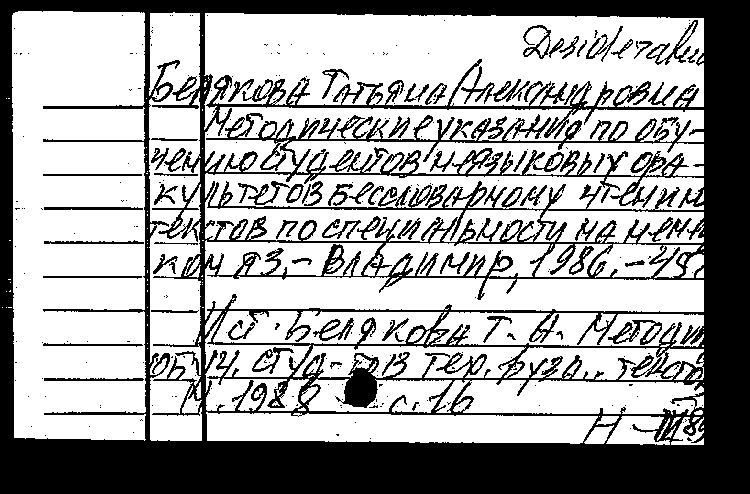 Desiderata
Белякова Татьяна Александровна
Методические указания по обу-
чению студентов неязыковых фа-
культетов бессловарному чтению
текстов по специальности на нем
ком яз. – Владимир, 1986. – 45
Ист. Белякова Т. А. Метод
обуч. студ-тов тер. вуза..
М. 1988 с. 16
Н – III 89